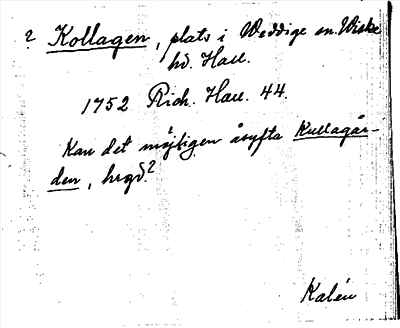 ? Kollagen, plats i Weddige sn. Wiske
hd. Hall.
1752 Rich. Hall. 44.
Kan det möjligen åsyfta Kullagår-
den, hrgd?
Kalén